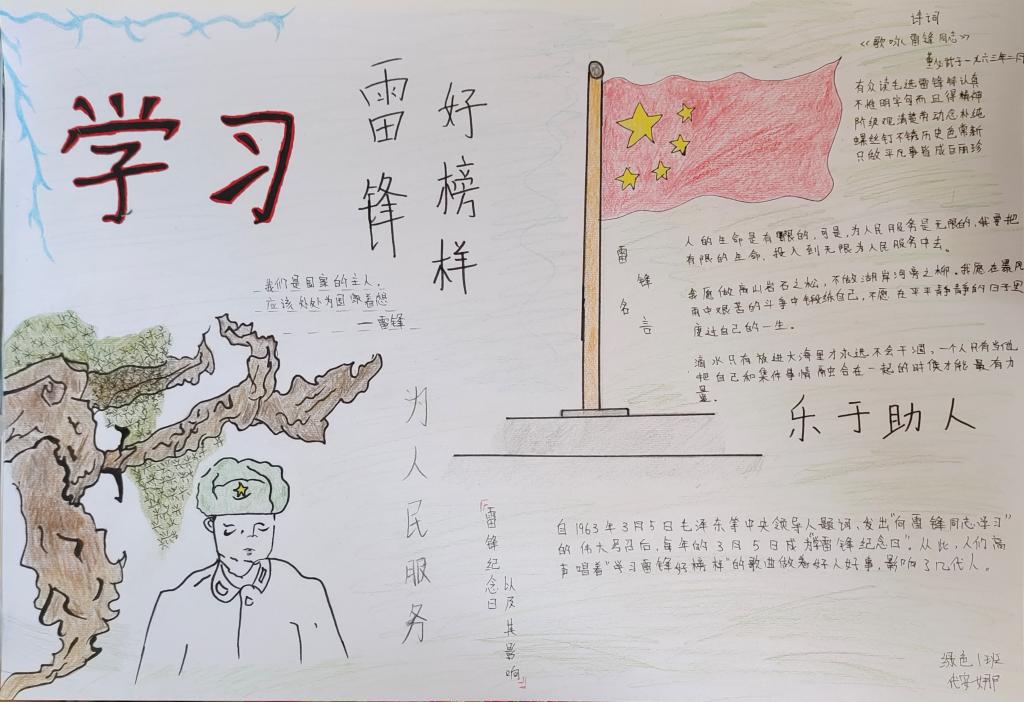 学习
雷锋
好榜样
诗词
《歌咏雷锋同志》
董必武于一九六三年二月
有众读毛选雷锋够认真
不惟明字句而且得精神
阶级观清楚劳动态朴纯
螺丝钉不锈历史色常新
只做平凡事皆成巨丽珍
雷锋名言
人的生命是有限的,可是,为人民服务是无限的,我要把
有限的生命,投入到无限为人民服务中去。
我愿做高山岩石之松,不做湖岸河旁之柳。我愿在暴风
雨中艰苦的斗争中锻练自己,不愿在平平静静的日子里
度过自己的一生。
滴水只有放进大海里才永远不会干涸,一个人只有当他
把自己和集体事情融合在一起的时候才能最有力
量。
我们是国家的主人,
应该处处为国家着想
——雷锋
乐于助人
为人民服务
“雷锋纪念日
以及其影响”
自1963年3月5日毛泽东等中央领导人题词,发出“向雷锋同志学习”
的伟大号召后,每年的3月5日成为“雷锋纪念日”。从此,人们高
声唱着“学习雷锋好榜样”的歌曲做着好人好事,影响了几代人。
绿色1班